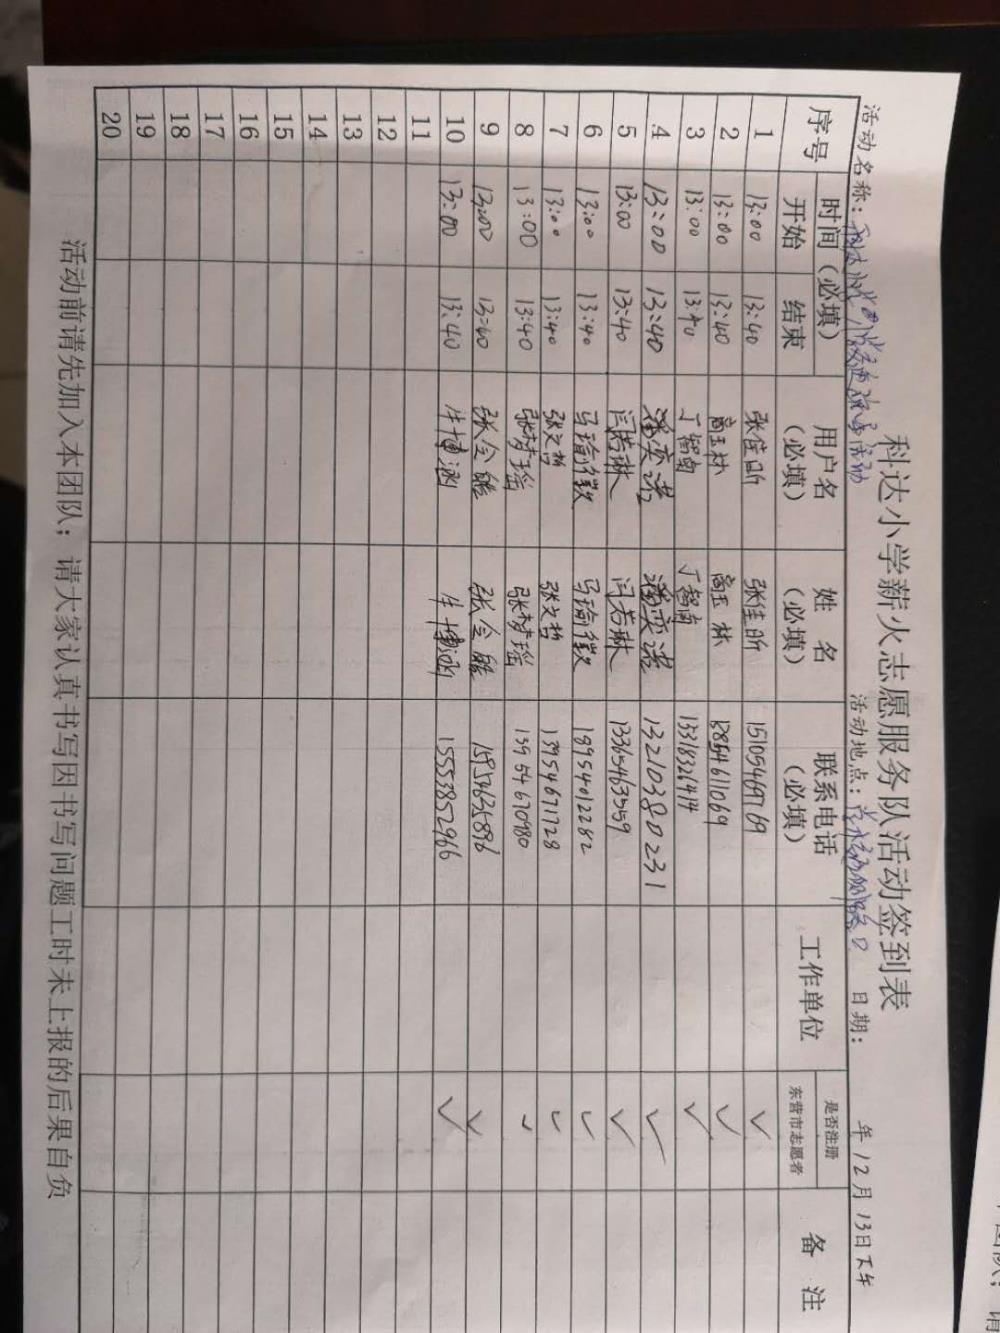 科达小学薪火志愿服务队活动签到表
活动名称: 活动 活动地点: 路口 日期: 年12月13日下午
序号 时间(必填) 用户名(必填) 姓名(必填) 联系电话(必填) 工作单位 是否注册东营市志愿者 备注
开始 结束
1 13:00 13:40 张佳昕 张佳昕 15105469769 ✓
2 13:00 13:40 高玉林 高玉林 13854611069 ✓
3 13:00 13:40 丁智南 丁智南 13318326414 ✓
4 13:00 13:40 潘奕诺 潘奕诺 13210380231 ✓
5 13:00 13:40 闫若琳 闫若琳 13365463559 ✓
6 13:00 13:40 马瑜徽 马瑜徽 18954012282 ✓
7 13:00 13:40 张文哲 张文哲 13954671728 ✓
8 13:00 13:40 张梦瑶 张梦瑶 13954670980 ✓
9 13:00 13:40 张令皓 张令皓 15954635896 ✓
10 13:00 13:40 牛博涵 牛博涵 15553852966 ✓
11
12
13
14
15
16
17
18
19
20
活动前请先加入本团队;请大家认真书写因书写问题工时未上报的后果自负